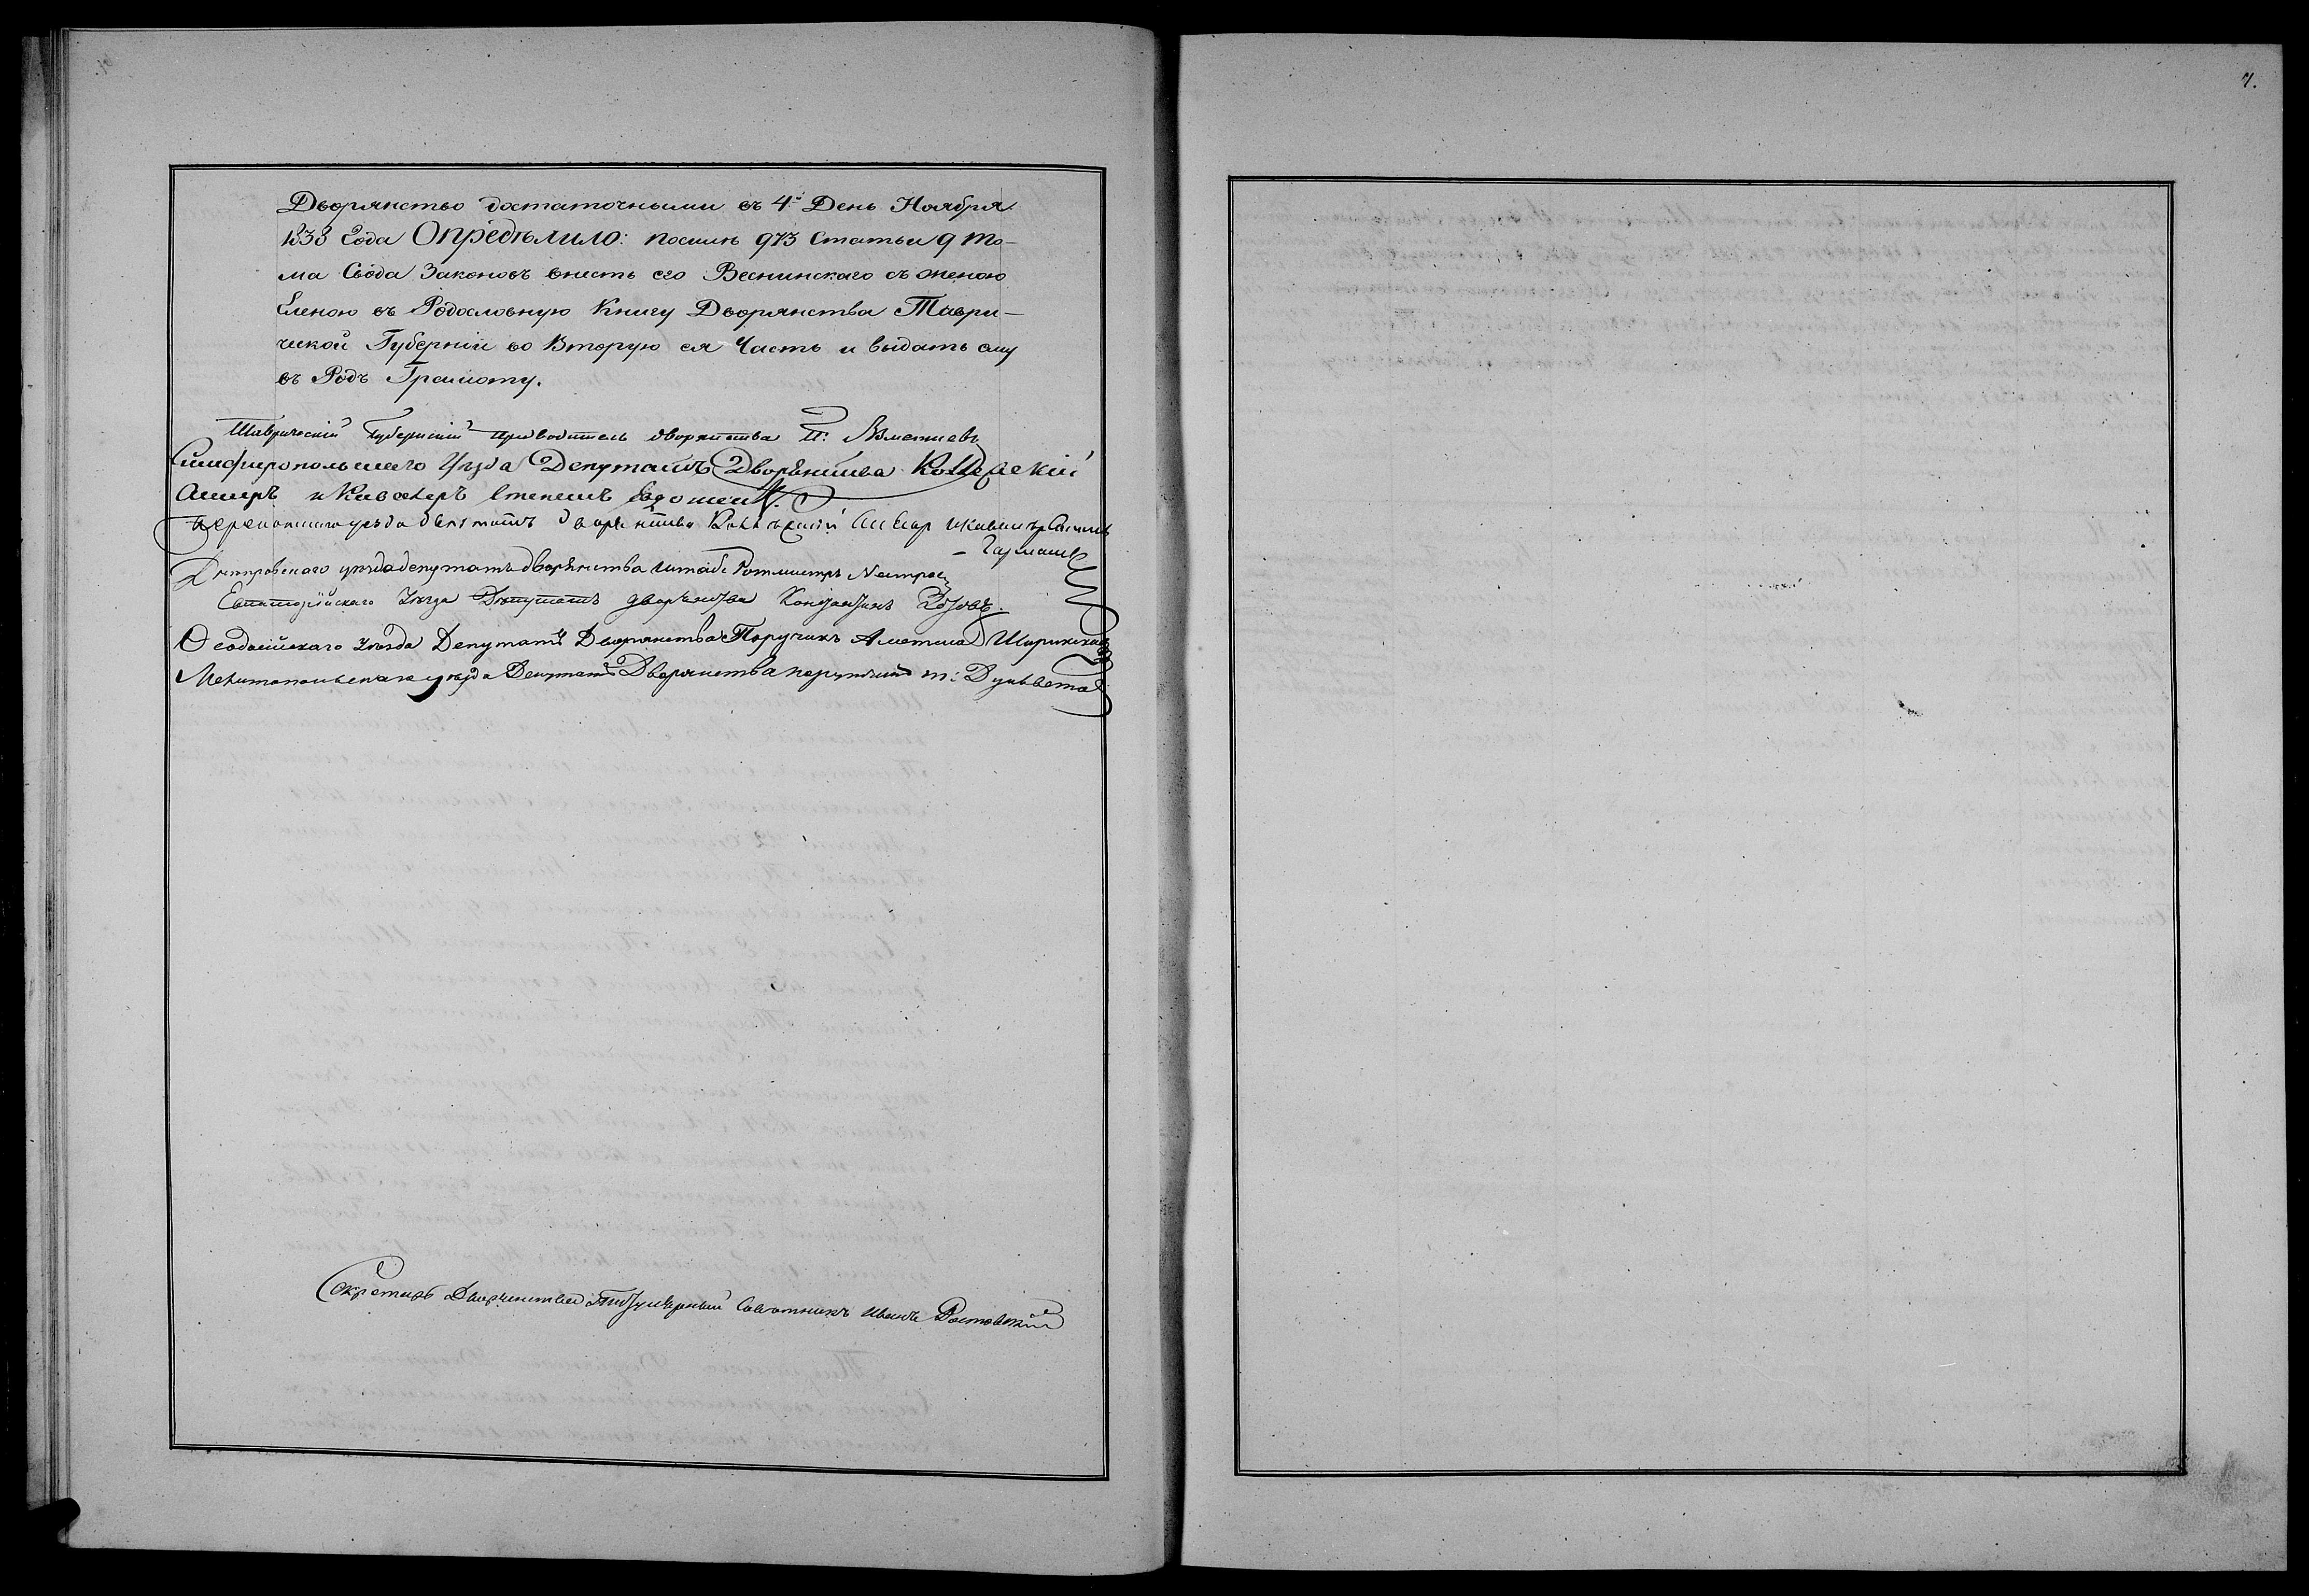 7.
Дворянство достаточными въ 4й День Ноября
1838 Года Опредѣлило: посилѣ 973 Статьи 9 То-
ма Свода Законовъ внесть его Веснинскаго съ женою
Еленою въ Родословную Книгу Дворянства Таври-
ческой Губерніи во Вторую ея Часть и выдать ему
въ Родъ Грамоту.
Таврическій Губернскій предводитель дворянства
Симферопольскаго Уѣзда Депутатъ Дворянства Коллежскій
Ассесоръ и Кавалеръ
уѣзда депутатъ дворянства Коллежскій
Днѣпровскаго уѣзда депутатъ дворянства штабъ Ротмистръ
Евпаторійскаго Уѣзда Депутатъ дворянства Константинъ
Ѳеодосійскаго Уѣзда Депутатъ Дворянства Поручикъ Аметша Ширинскій
Мелитопольскаго уѣзда Депутатъ Дворянства
Секретарь Дворянства Титулярный Совѣтникъ Иванъ Ростовскій